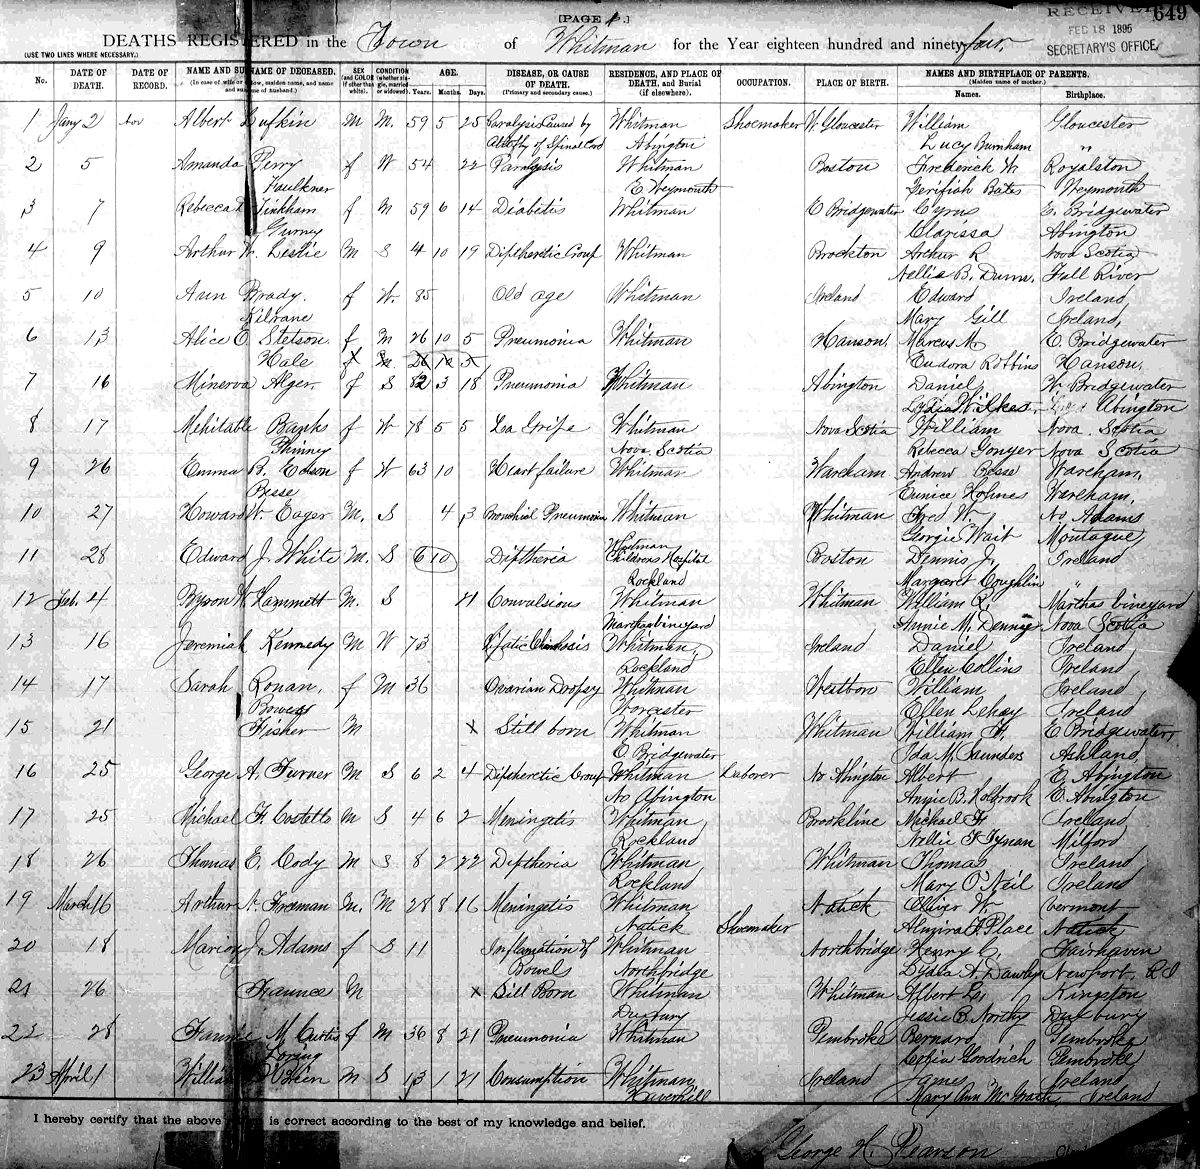 [PAGE 1.]
RECEIVED 649
FEB 18 1895
SECRETARY'S OFFICE.
DEATHS REGISTERED in the Town of Whitman for the Year eighteen hundred and ninety-four,
(USE TWO LINES WHERE NECESSARY.)
No. DATE OF DEATH. DATE OF RECORD. NAME AND SURNAME OF DECEASED. (In case of wife or widow, maiden name, and name and surname of husband.) SEX (and COLOR if other than white). CONDITION (whether single, married or widowed). AGE. Years. Months. Days. DISEASE, OR CAUSE OF DEATH. (Primary and secondary cause.) RESIDENCE, AND PLACE OF DEATH, and Burial (if elsewhere). OCCUPATION. PLACE OF BIRTH. NAMES AND BIRTHPLACE OF PARENTS. (Maiden name of mother.) Names. Birthplace.
1 Jany 2 Albert Lufkin M M. 59 5 25 Paralysis Caused by Whitman Shoemaker W. Gloucester William Gloucester
Atrophy of Spinal Cord Abington Lucy Burnham "
2 5 Amanda Perry f W 54 22 Paralysis Whitman Boston Frederick W. Royalston
Faulkner E Weymouth Bates Weymouth
3 7 Rebecca Tinkham f M 59 6 14 Diabetis Whitman E Bridgewater Cyrus E. Bridgewater
Gurney Clarissa Abington
4 9 Arthur W. Leslie M S 4 10 19 Diptheretic Croup Whitman Brockton Arthur R Nova Scotia
Nellie B. Dunn, Fall River
5 10 Ann Brady. f W. 85 Old age Whitman Ireland Edward Ireland,
Kilrane Mary Gill Ireland,
6 13 Alice E. Stetson f M 26 10 5 Pneumonia Whitman Hanson, Marcus M. E. Bridgewater
Hale f M 26 10 5 Eudora Robbins Hanson,
7 16 Minerva Alger f S 2 3 18 Pneumonia Whitman Abington Daniel W Bridgewater
Lydia Wilkes Abington
8 17 Mehitable Banks f W 78 5 5 La Gripe Whitman Nova Scotia William Nova Scotia
Phinney Nova Scotia Rebecca Nova Scotia
9 26 Emma B. Edson f W 63 10 Heart failure Whitman Wareham Andrew Besse Wareham,
Besse Eunice Holmes Wareham,
10 27 Howard W. Eager M. S 4 3 Bronchial Pneumonia Whitman Whitman Fred W. No Adams
Georgie Wait Montague,
11 28 Edward J. White M. S 6 10 Diptheria Whitman Boston Dennis J. Ireland
Childrens Hospital
Rockland Margaret Coughlin "
12 Feb. 4 Byron W. Hammett M. S 21 Convulsions Whitman Whitman William R. Marthas Vineyard
Marthas Vineyard Annie M. Nova Scotia
13 16 Jeremiah Kennedy M W 73 Whitman, Ireland Daniel Ireland,
Rockland Ellen Collins Ireland
14 17 Sarah Ronan, f M 36 Ovarian Dropsy Whitman Westboro William Ireland
Bowers Worcester Ellen Ireland
15 21 Fisher M x Still born Whitman Whitman William H. E Bridgewater,
E Bridgewater Ida M. Saunders Ashland,
16 25 George A. Turner M S 6 2 4 Diptheretic Croup Whitman Laborer No Abington Albert E. Abington
No Abington Annie B. Holbrook E. Abington
17 25 Michael F. Costello M S 4 6 2 Meningetis Whitman Brookline Michael F. Ireland
Rockland Nellie F Tynan Milford
18 26 Thomas E. Cody M S 8 2 22 Diptheria Whitman Whitman Thomas Ireland
Rockland Mary O'Neil Ireland
19 March 16 Arthur N. Freeman M. M 28 8 16 Meningetis Whitman Natick Oliver W Vermont
Natick Shoemaker Almira F. Place Natick
20 18 Marion J. Adams f S 11 Inflamation of Whitman Northbridge Henry C. Fairhaven
Bowels Northbridge Lydia A. Dawley Newport, R.I
21 26 Faunce M x Still Born Whitman Whitman Albert L. Kingston
Duxbury Jessie B. Northy Duxbury
22 28 Fannie M. Curtis f M 36 8 21 Pneumonia Whitman Pembroke Bernard Pembroke
Loring Goodrich Pembroke
23 April 1 William O'Brien M S 13 1 21 Consumption Whitman Ireland James Ireland
Haverhill Mary Ann McGrath, Ireland
I hereby certify that the above is correct according to the best of my knowledge and belief.
George H. Pearson